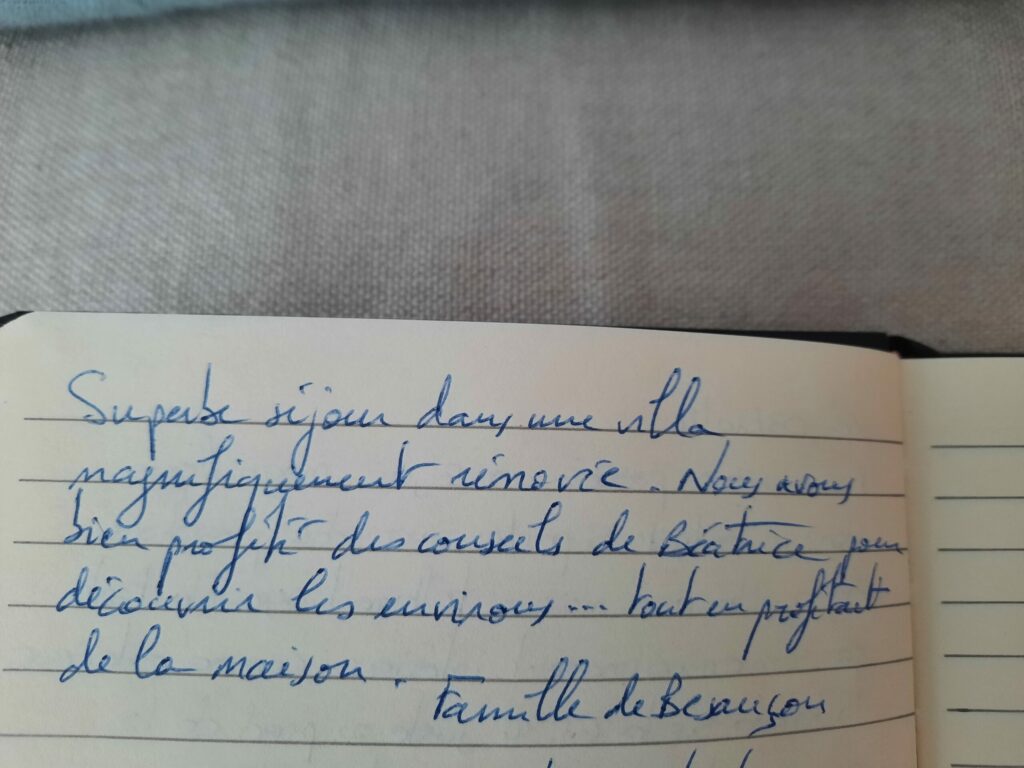 Superbe séjour dans une villa
magnifiquement rénovée. Nous avons
bien profité des conseils de Béatrice pour
découvrir les environs... tout en profitant
de la maison.
Famille de Besançon